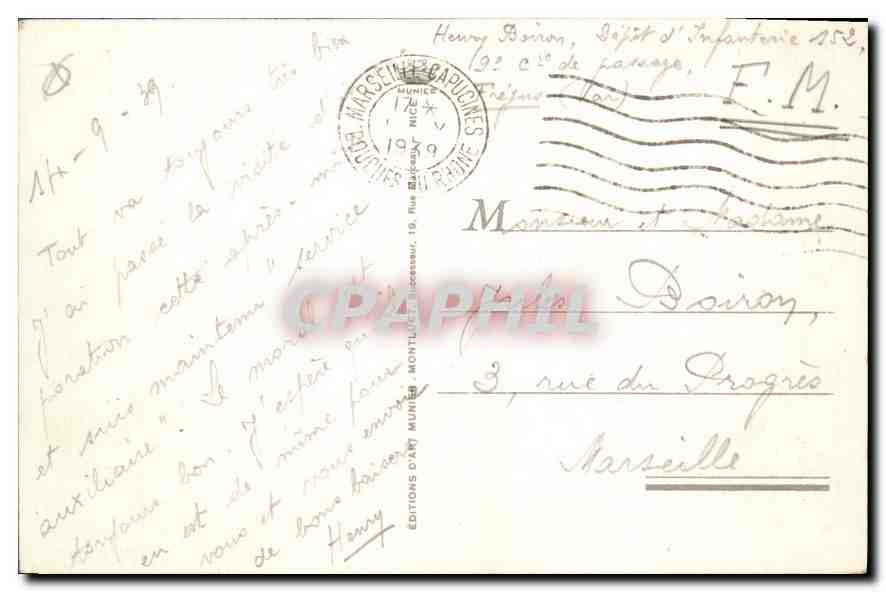 14-9-39.
Tout va toujours très bien
J'ai passé la visite d'
poration cette après-mi
et suis maintenu "service
auxiliaire". Le moral est
toujours bon. J'espère qu'il
en est de même pour
vous et vous envoie
de bons baisers
Henry
Henry Boiron, Dépôt d'Infanterie 152,
9e Cie de passage,
Fréjus (Var)
F.M.
MARSEILLE-CAPUCINES
17 *
1939
BOUCHES DU RHONE
MUNIER
NICE
ÉDITIONS D'ART MUNIER. MONTLUET, Successeur, 19, Rue Marceau
CPAPHIL
Monsieur et Madame
Jules Boiron,
3, rue du Progrès
Marseille